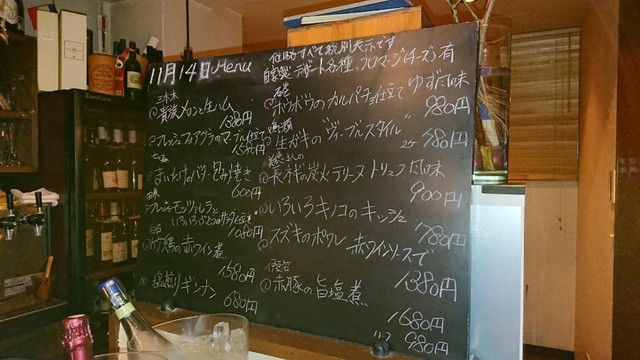 11月14日 Menu
価格はすべて税別表示です
自家製デザート各種、フロマージュ(チーズ)有
メロンと生ハム
1380円
フレッシュフォアグラのマーブル仕立て
1580円
まいたけのバター包み焼き
600円
フレッシュモッツァレラと
いろいろ
サラダ仕立て
1080円
赤ワイン煮
1580円
塩煎りギンナン
680円
ホウボウのカルパッチョ仕立て ゆず風味
980円
生ガキの
スタイル"
2ヶ 980円
長ネギの炭火テリーヌ トリュフ風味
900円
いろいろキノコのキッシュ
780円
スズキのポワレ 赤ワインソースで
1380円
赤豚の旨塩煮
1680円
ハーフ 980円